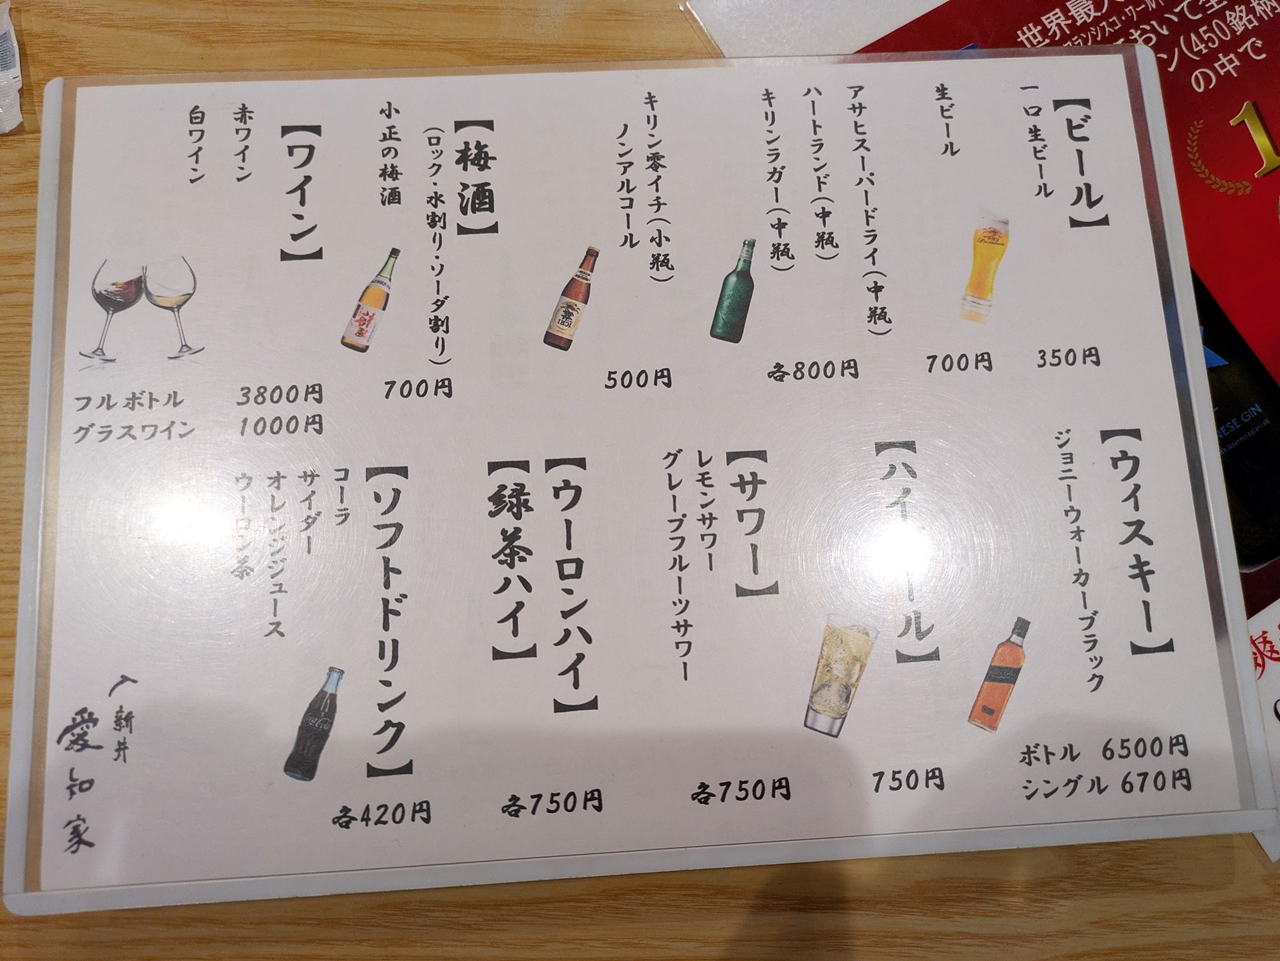 【ビール】
一口生ビール
350円
生ビール
700円
アサヒスーパードライ(中瓶)
ハートランド(中瓶)
キリンラガー(中瓶)
各800円
キリン零イチ(小瓶)
ノンアルコール
500円
【梅酒】
(ロック・水割り・ソーダ割り)
小正の梅酒
700円
【ワイン】
赤ワイン
白ワイン
フルボトル 3800円
グラスワイン 1000円
【ウィスキー】
ジョニーウォーカーブラック
ボトル 6500円
シングル 670円
【ハイボール】
750円
【サワー】
レモンサワー
グレープフルーツサワー
各750円
【ウーロンハイ】
【緑茶ハイ】
各750円
【ソフトドリンク】
コーラ
サイダー
オレンジジュース
ウーロン茶
各420円
入新井
愛知家
世界最
おいて全
ン(450銘柄
の中で
1
NESE GIN